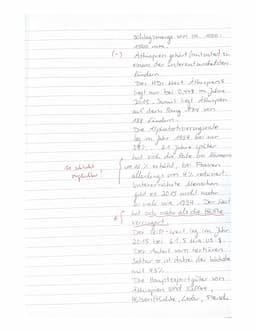 schlagsmenge von ca. 1000-
1500 mm.
(-) Äthiopien gehört laut
einem der unterentwickelsten
Ländern.
Der HDI-Wert Äthiopiens
liegt nur bei 0,448 im Jahre
2015. Somit liegt Äthiopien
auf dem Rang 174 von
188 Ländern.
Die Alphabetisierungsrate
lag im Jahr 1994 bei nur
21 Jahre später
hat sich die Rate bei Männern
um % erhöht, bei Frauen
allerdings um 4% reduziert.
Unterernährte Menschen
gibt es 2015 nicht mehr
so viele wie 1994. Der Wert
hat sich mehr als die Hälfte
verringert.
Der BIP-Wert lag im Jahr
2015 bei 61.5 US $
Der Anteil vom tertiären
Sektor ist dabei der höchste
mit 43%.
Die Hauptexportgüter von
Äthiopien sind Kaffee,
Hülsenfrüchte, Leder, Fleisch